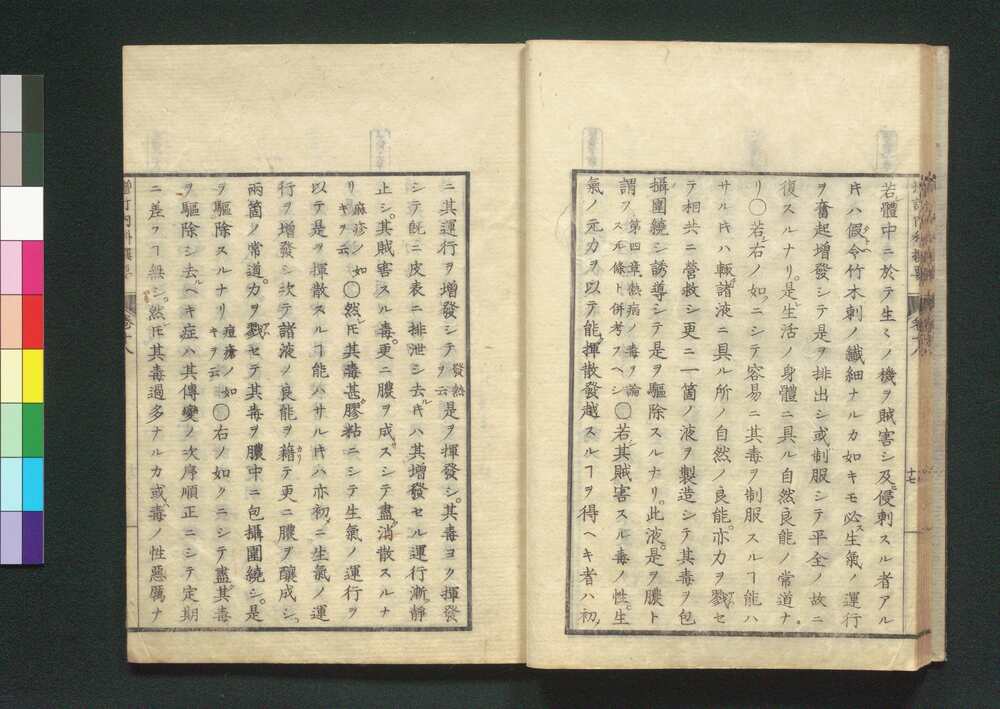 若體中ニ於テ生々ノ機ヲ賊害シ及侵刺スル者アル
キハ假令竹木刺ノ纖細ナルカ如キモ必生氣ノ運行
ヲ奮起增發シテ是ヲ排出シ或制服シテ平全ノ故ニ
復スルナリ是生活ノ身體ニ具ル自然良能ノ常道ナ
リ○若右ノ如ニシテ容易ニ其毒ヲ制服スルヿ能ハ
サルキハ輙諸液ニ具ル所ノ自然ノ良能亦力ヲ戮セ
テ相共ニ營救シ更ニ一箇ノ液ヲ製造シテ其毒ヲ包
攝圍繞シ誘導シテ是ヲ驅除スルナリ此液是ヲ膿ト
謂フ第四章熱病ノ毒ヲ論スル條ト併考フヘシ○若其賊害スル毒ノ性生
氣ノ元力ヲ以テ能揮散發越スルヿヲ得ヘキ者ハ初
ニ其運行ヲ增發シテ發熱ヲ云是ヲ揮發シ其毒ヨク揮發
シテ旣ニ皮表ニ排泄シ去キハ其增發セル運行漸靜
止シ其賊害スル毒更ニ膿ヲ成スシテ盡消散スルナ
リ麻疹ノ如キヲ云○然𪜈其毒甚膠粘ニシテ生氣ノ運行ヲ
以テ是ヲ揮散スルヿ能ハサルキハ亦初ニ生氣ノ運
行ヲ增發シ次テ諸液ノ良能ヲ藉テ更ニ膿ヲ釀成シ
兩箇ノ常道力ヲ戮セテ其毒ヲ膿中ニ包攝圍繞シ是
ヲ驅除スルナリ痘瘡ノ如キヲ云○右ノ如クニシテ盡其毒
ヲ驅除シ去ヘキ症ハ其傳變ノ次序順正ニシテ定期
ニ差フヿ無シ然𪜈其毒過多ナルカ或毒ノ性惡厲ナ